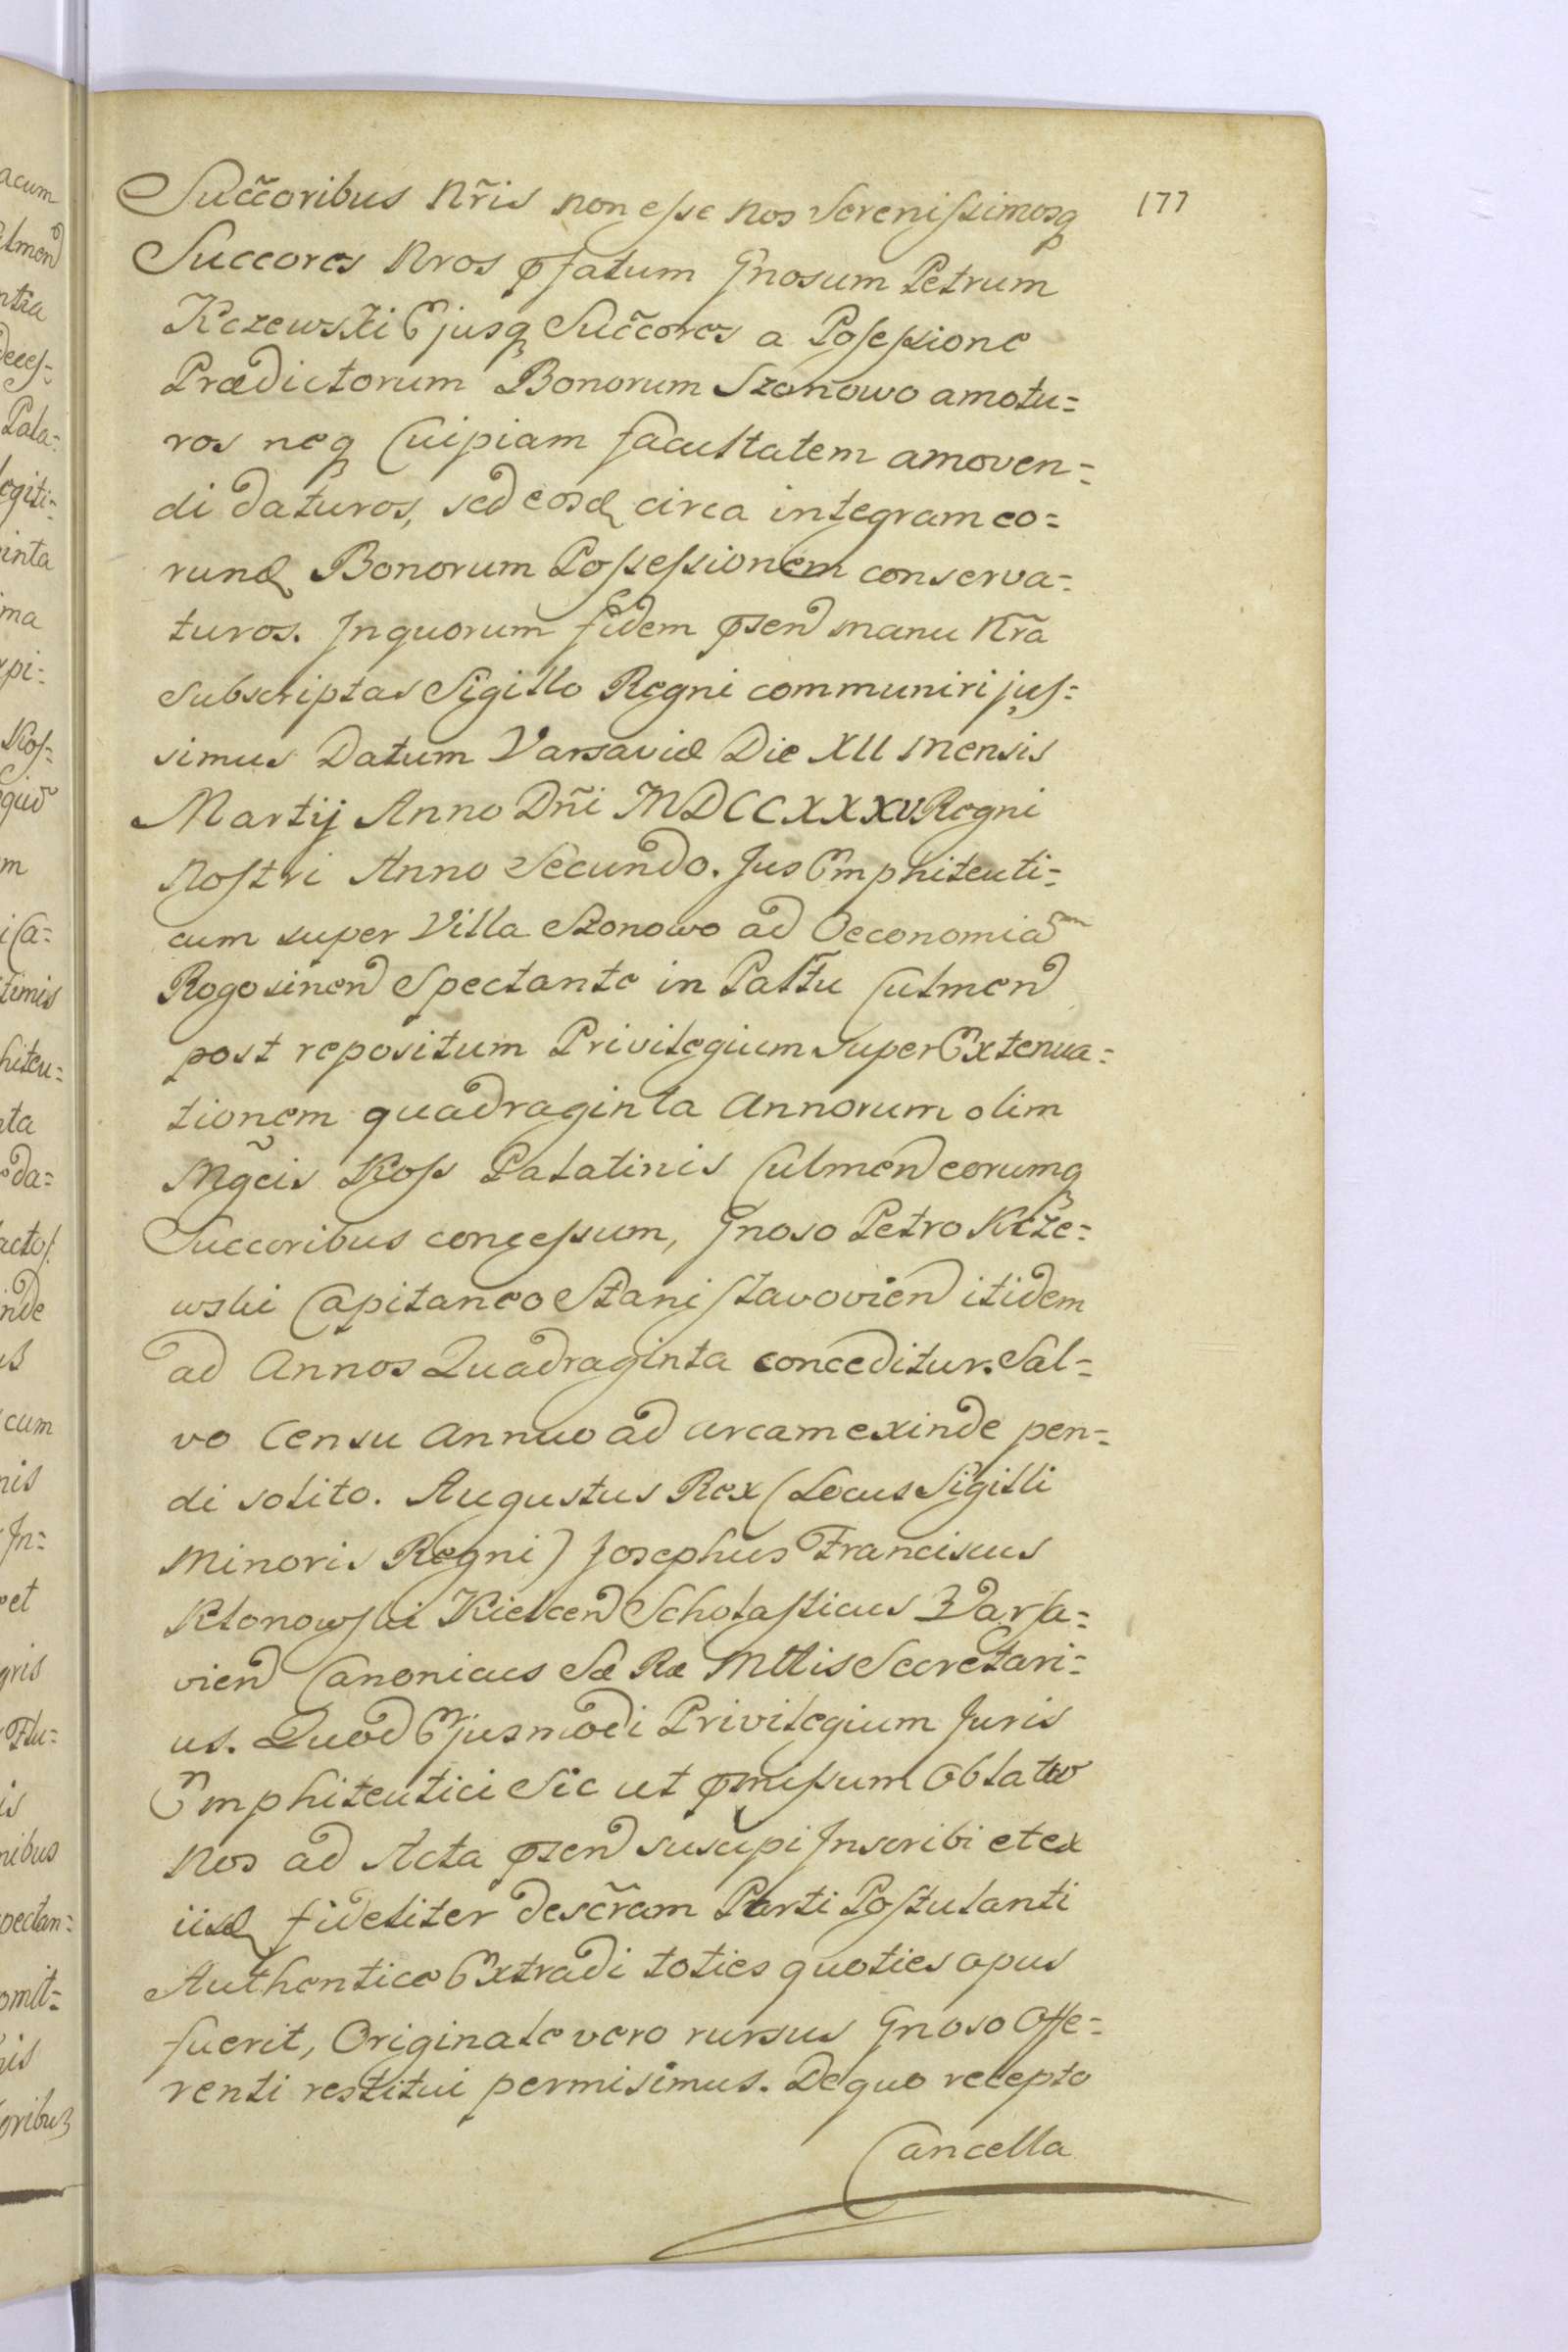 177
Succ̃oribus Nr̃is non esse nos Serenissimosq
Succores Nros pfatum Gnosum Petrum
Kczewski Ejusq Succ̃ores a Posessione
Prædictorum Bonorum Szonowo amotu=
ros neq Cuipiam facultatem amoven=
di daturos, sed eosd circa integram eo=
rund Bonorum Possessionem conserva=
turos. In quorum fidem psend manu Nr̃a
subscriptas Sigillo Regni communiri jus=
simus Datum Varsaviæ Die XII mensis
Martij Anno Dñi MDCCXXXV Regni
Nostri Anno Secundo. Jus Emphiteuti=
cum super Villa Szonowo ad Oeconomiam
Rogosinen Spectante in Palttu Culmen
post repositum Privilegium super Extenua=
tionem quadraginta Annorum olim
Mg̃cis Koss Palatinis Culmen eorumq
Succoribus concessum, Gnoso Petro Kcze=
wski Capitaneo Stanislavovien itidem
ad Annos Quadraginta conceditur. Sal=
vo Censu Annuo ad arcam exinde pen=
di solito. Augustus Rex (Locus Sigilli
Minoris Regni) Josephus Franciscus
Klonowski Kielcen Scholasticus Varsa=
vien Canonicus Sæ Ræ Mttis Secretari=
us. Quod Ejusmodi Privilegium Juris
Emphiteutici Sic ut pmissum Oblatu
Nos ad Acta psen suscipi Inscribi et ex
iisd fideliter descr̃am Parti Postulanti
Authentice Extradi toties quoties opus
fuerit, Originale vero rursus Gnoso Offe=
renti restitui permisimus. De quo recepto
Cancella